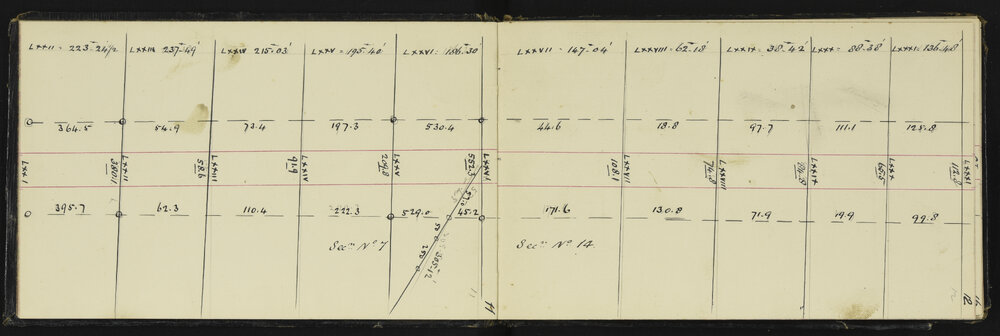 LXXII = 223-24½ LXXIII 237-49' LXXIV 215-03' LXXV = 195-40' LXXVI = 186-30 LXXVII = 147-04' LXXVIII = 62-18' LXXIX = 38-42' LXXX = 88-38' LXXXI = 136-48
364.5 54.9 73.4 197.3 530.4 44.6 18.8 97.7 111.1 125.8
LXXI LXXII 586 LXXIII 91.9 LXXIV LXXV 552.5 LXXVI 108.1 LXXVII 74.8 LXXVIII LXXIX 65.5 LXXX 112.8 LXXXI
395.7 62.3 110.4 222.3 529.0 45.2 171.6 130.8 71.9 79.9 99.8
50
250
305-12'
Secn No 7 Secn No 14
11 12